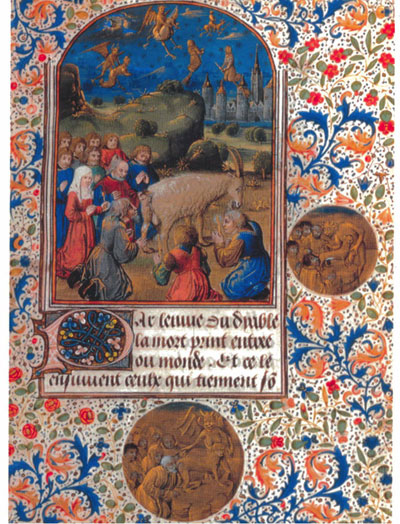 Par lenuie du diable
la mort print entree
ou monde. Et ce le
ensuiuent ceulx qui tiennent sõ